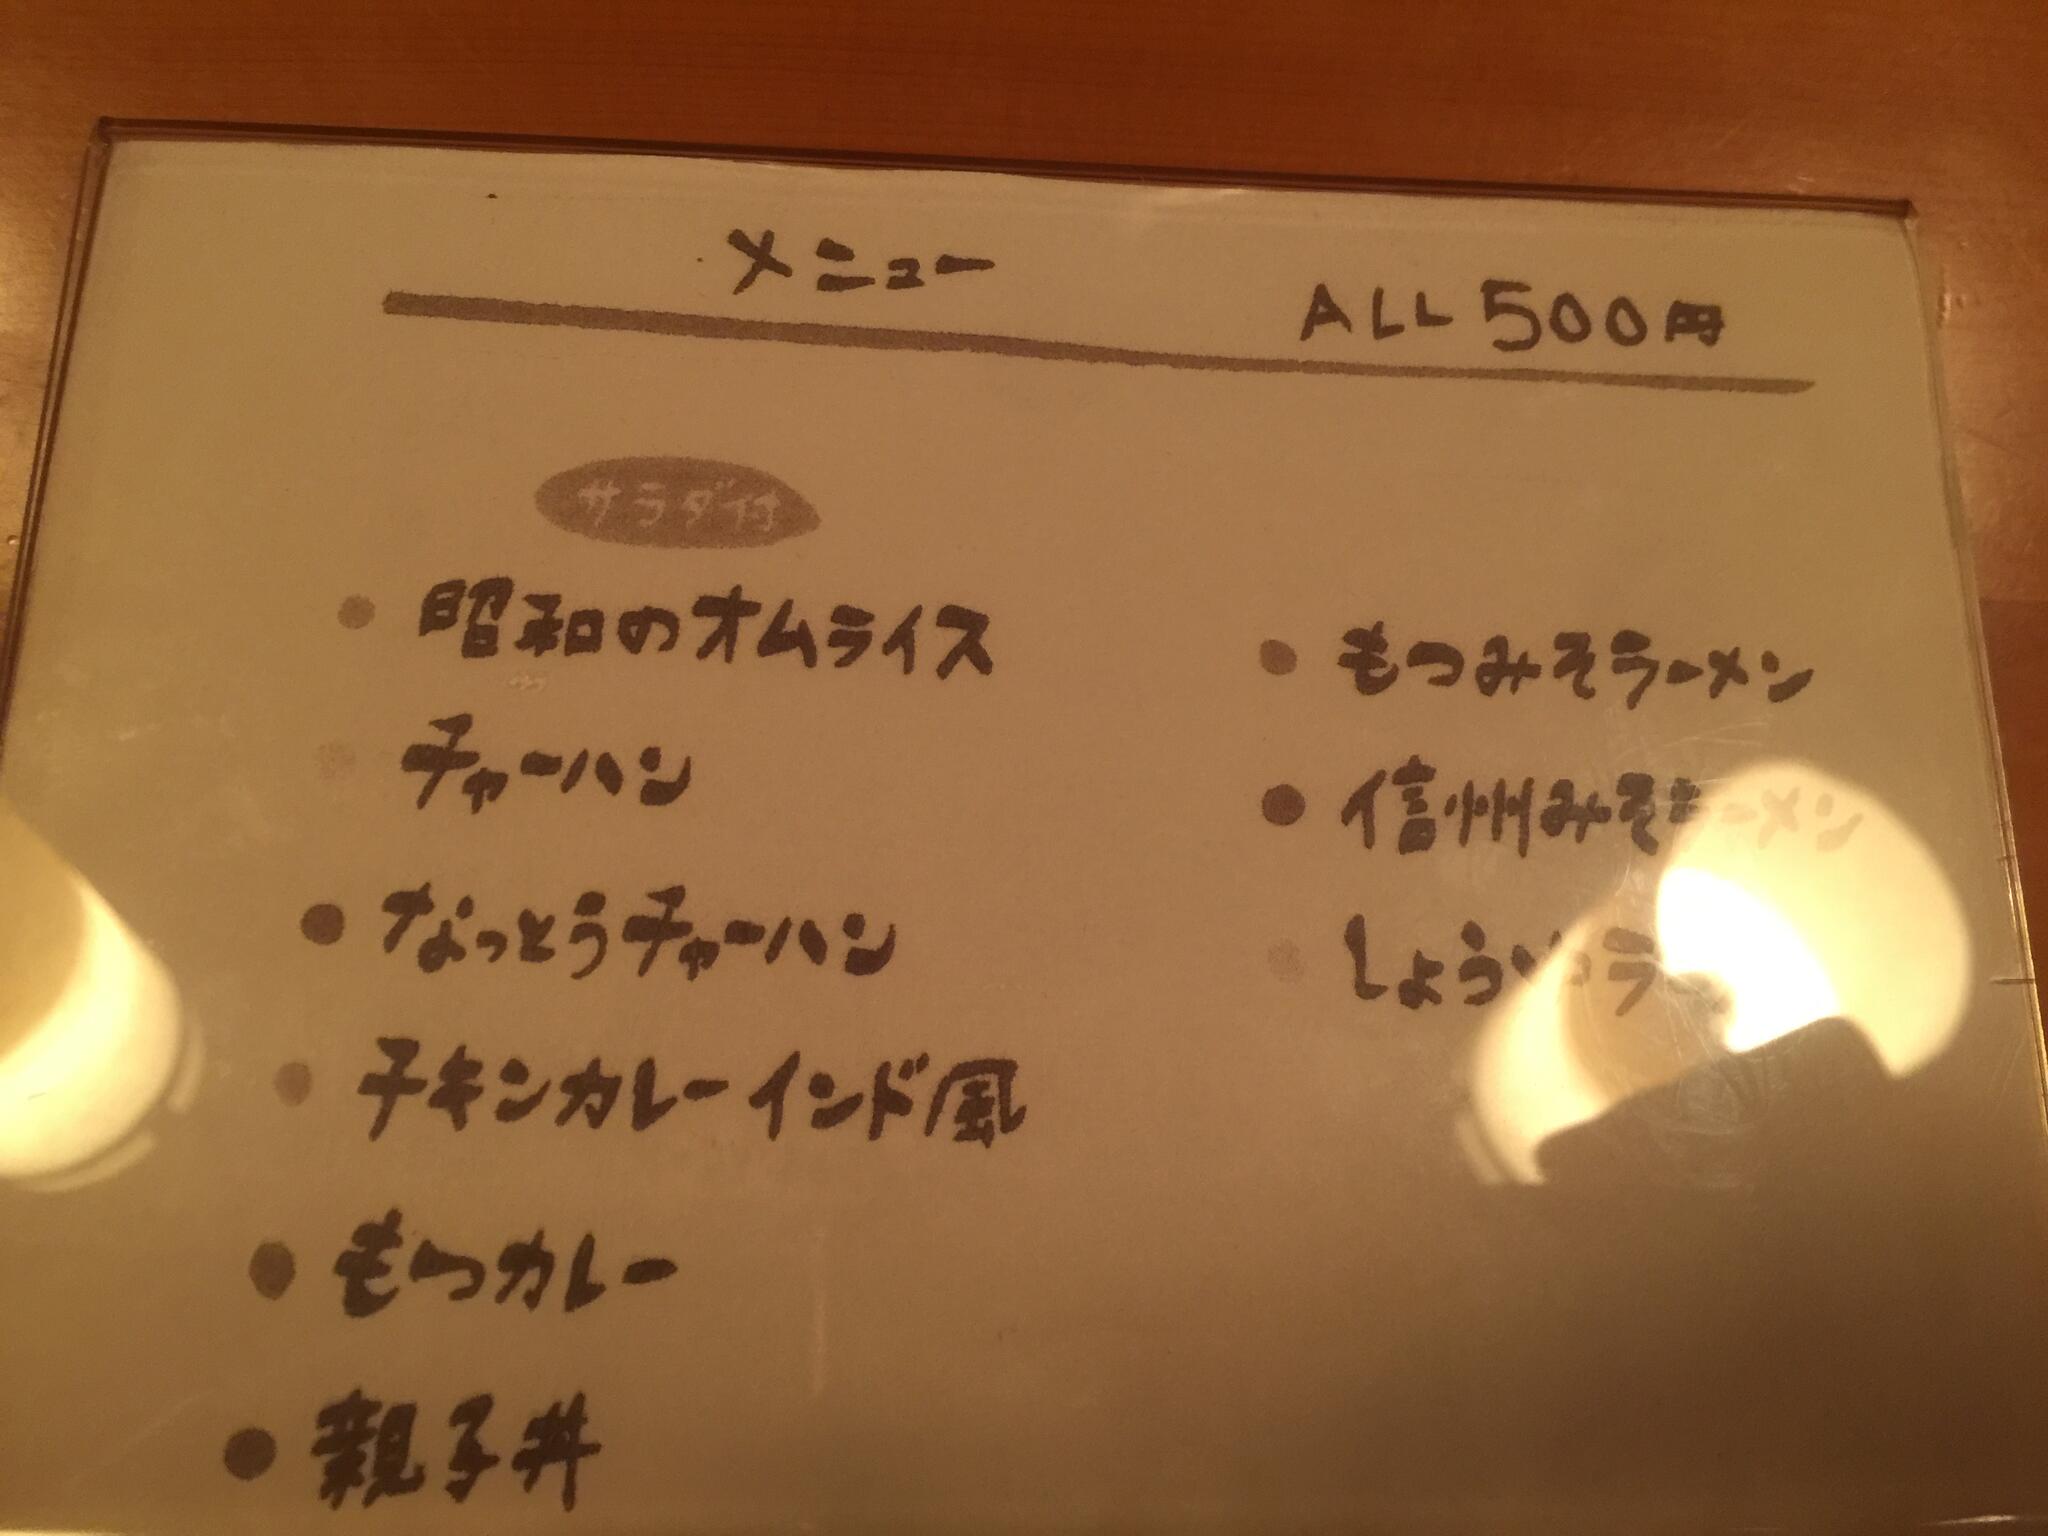 メニュー
ALL 500円
サラダ付
昭和のオムライス
チャーハン
なっとうチャーハン
チキンカレーインド風
もつカレー
親子丼
もつみそラーメン
信州みそラーメン
しょうゆラー